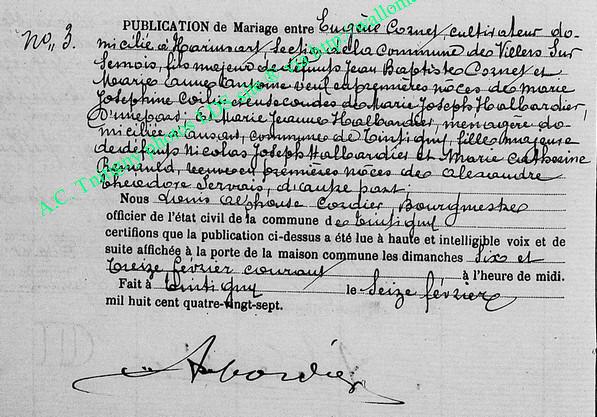 No. 3. PUBLICATION de Mariage entre Eugène Cornet, cultivateur do-
micilié à Harinsart, section de la Commune de Villers Sur
Semois, fils majeur de défunts Jean Baptiste Cornet et
Marie Jeanne veuf en premières noces de Marie
Josephine et en secondes de Marie Joseph Halbardier,
D'une part; et Marie Jeanne Halbardier, ménagère do-
miciliée à Ansart, commune de Tintigny, fille majeure
de défunts Nicolas Joseph Halbardier et Marie Catherine
Renauld, veuve en premières noces de Alexandre
Théodore Servais, d'autre part;
Nous Louis Alphonse Cordier Bourgmestre
officier de l'état civil de la commune de Tintigny
certifions que la publication ci-dessus a été lue à haute et intelligible voix et de
suite affichée à la porte de la maison commune les dimanches Six et
Treize février courant à l'heure de midi.
Fait à Tintigny le Seize février
mil huit cent quatre-vingt-sept.
A.C. Tintigny photos